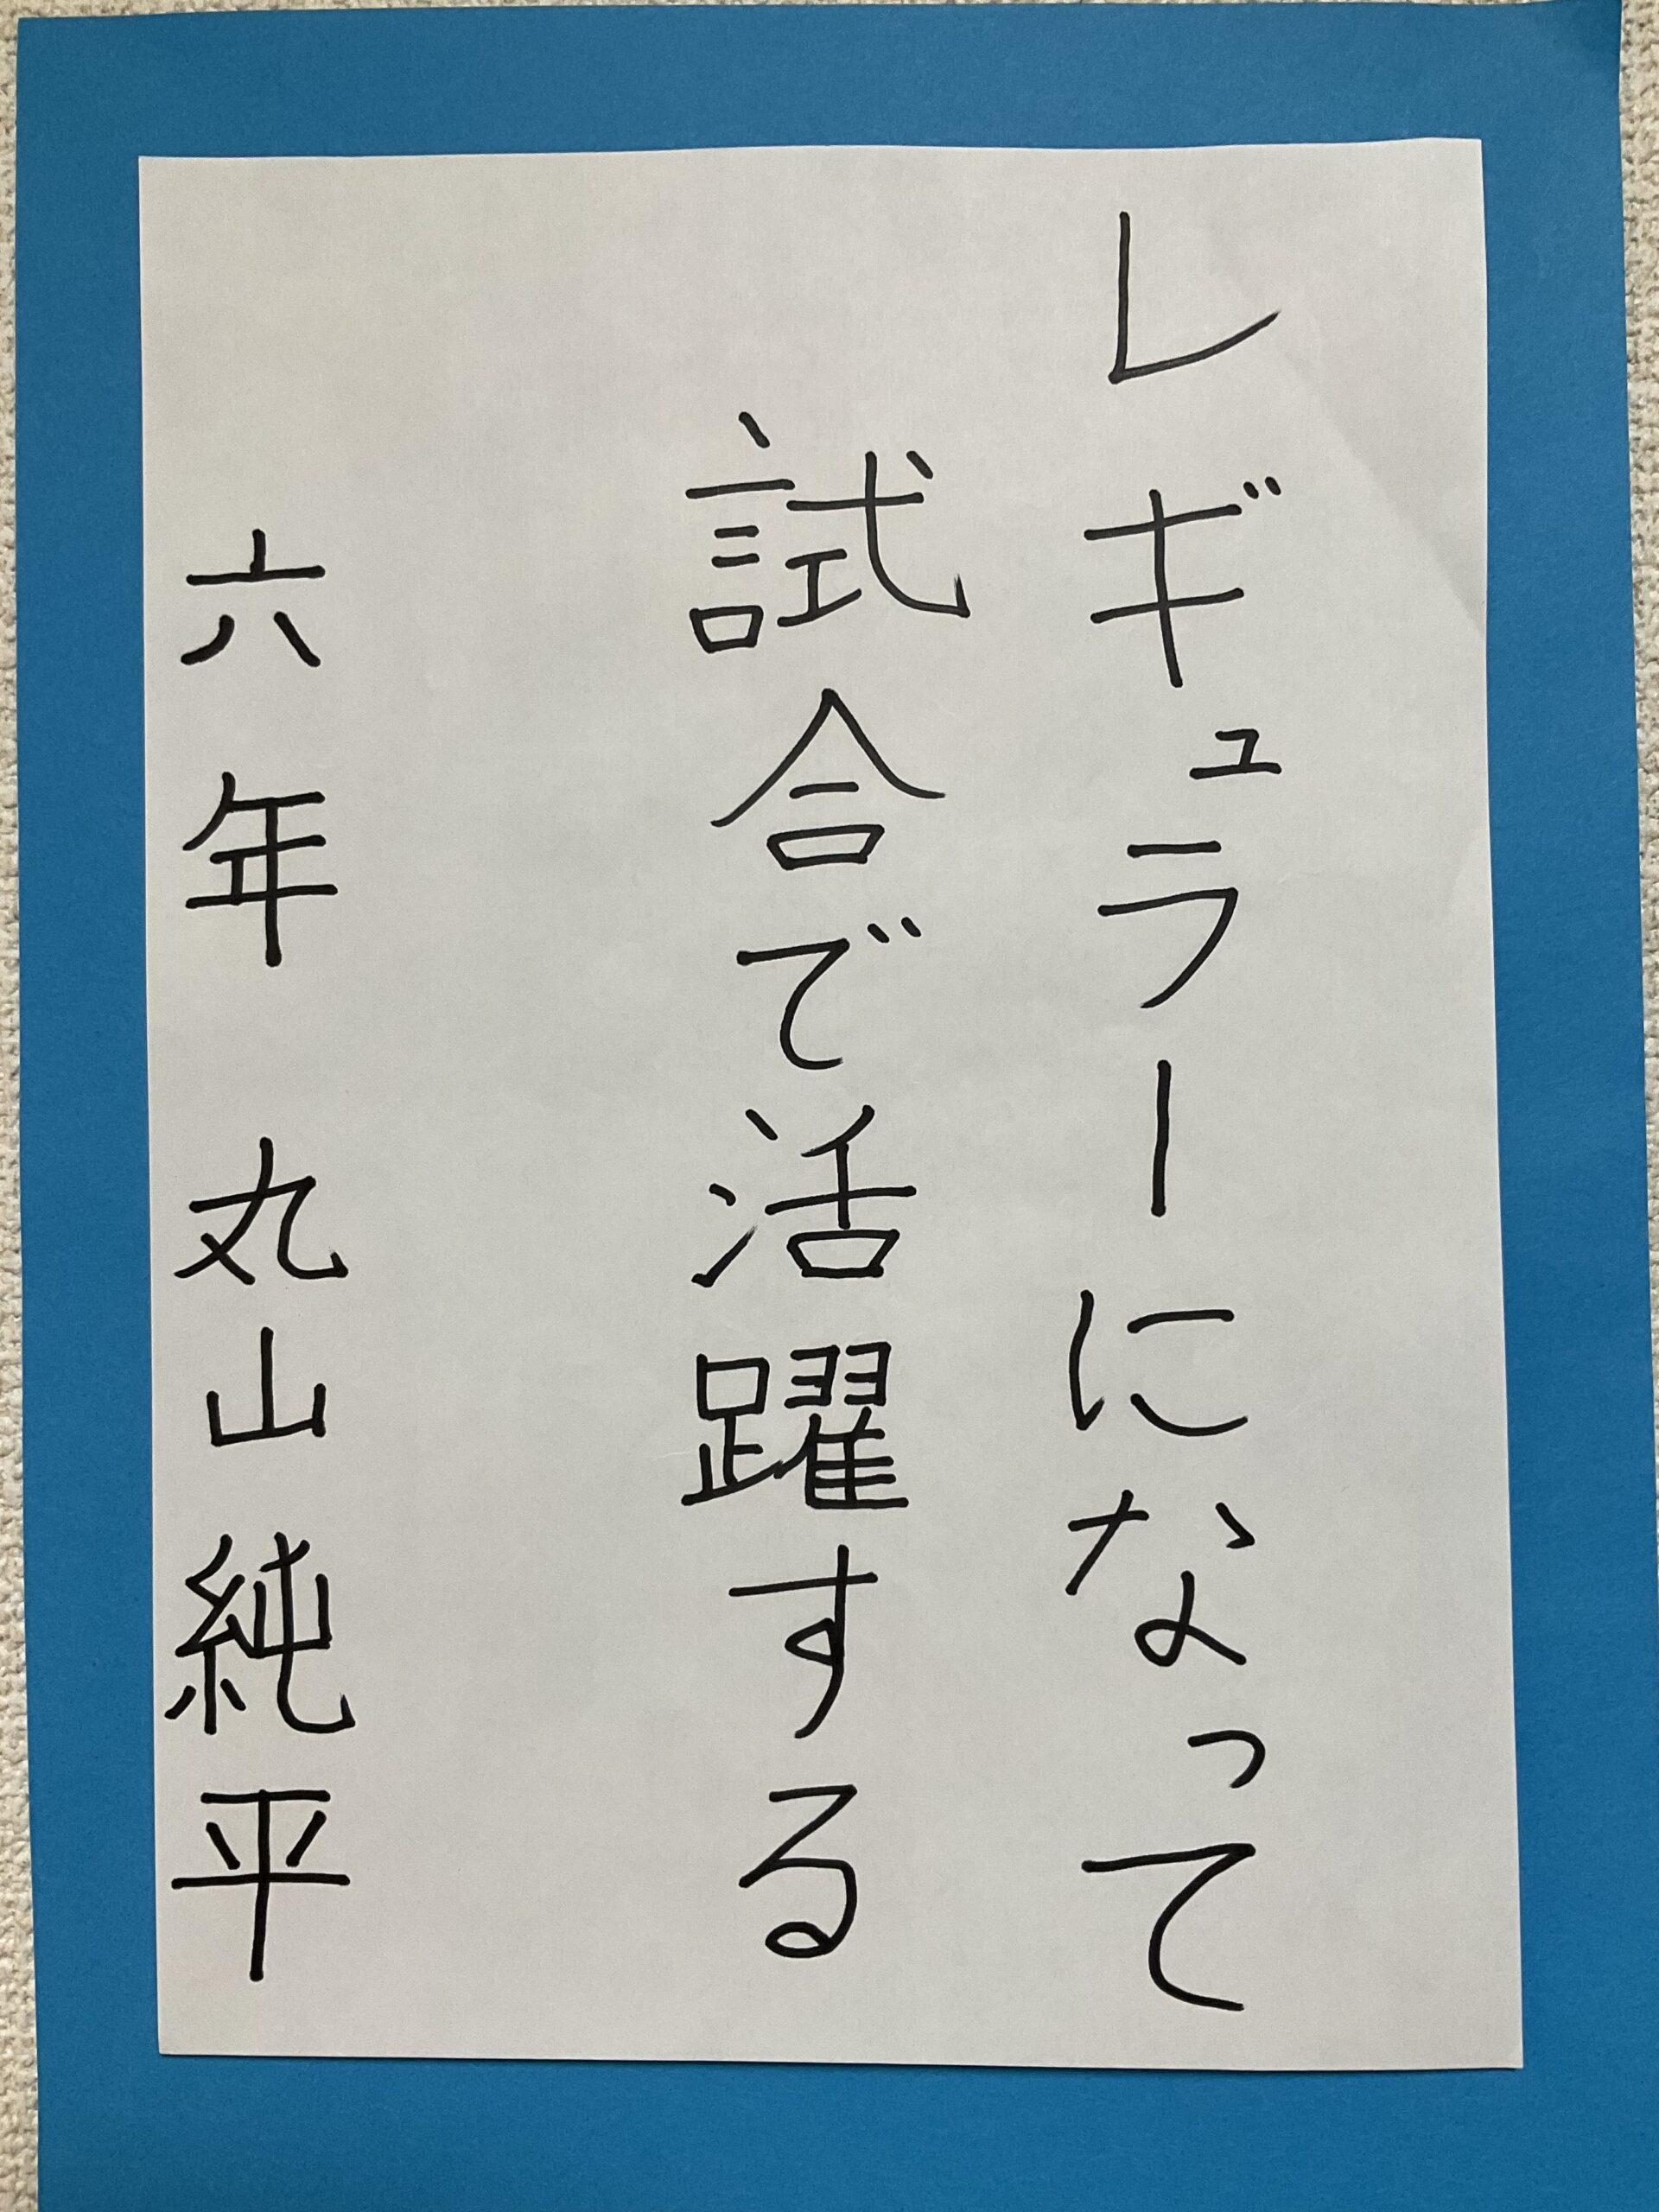 レギュラーになって
試合で活躍する
六年 丸山純平